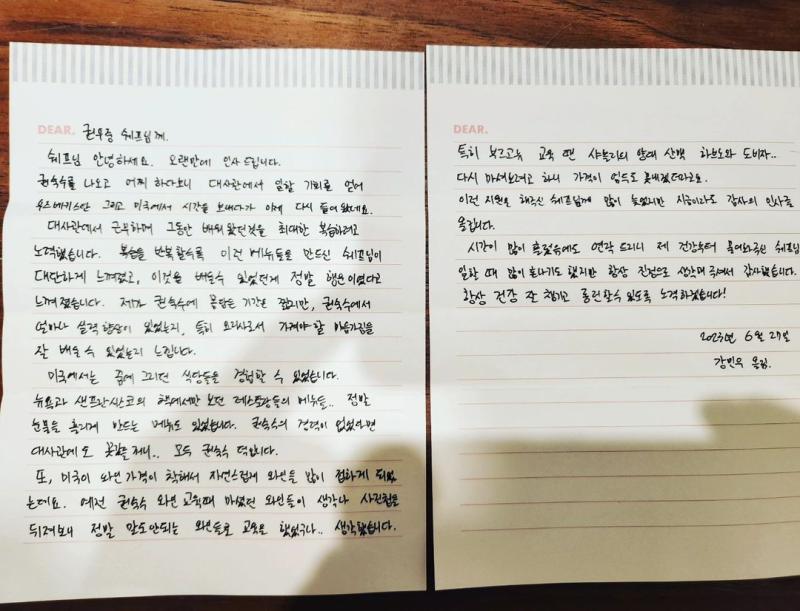 DEAR. 권우중 쉐프님께.
쉐프님 안녕하세요. 오랜만에 인사드립니다.
권숙수를 나오고 어찌 하다보니 대사관에서 일할 기회를 얻어
우즈베키스탄 그리고 미국에서 시간을 보내다가 이제 다시 들어왔네요.
대사관에서 근무하며 그동안 배워왔던것을 최대한 복습하려고
노력했습니다. 복습을 반복할수록 이런 메뉴들을 만드신 쉐프님이
대단하게 느껴졌고, 이것을 배울수 있었던게 정말 행운이였다고
느껴졌습니다. 제가 권숙수에 몸담은 기간은 짧지만, 권숙수에서
얼마나 실력향상이 있었는지, 특히 요리사로서 가져야 할 마음가짐을
잘 배울 수 있었는지 느낍니다.
미국에서는 꿈에 그리던 식당들을 경험할 수 있었습니다.
뉴욕과 샌프란시스코의 책에서만 보던 레스토랑들의 메뉴들.. 정말
눈물을 흘리게 만드는 메뉴도 있었습니다. 권숙수의 경력이 없었다면
대사관에도 못갔을테니.. 모두 권숙수 덕입니다.
또, 미국이 와인가격이 착해서 자연스럽게 와인을 많이 접하게 되었
는데요. 예전 권숙수 와인교육때 마셨던 와인들이 생각나 사진첩을
뒤져보니 정말 말도안되는 와인들로 교육을 했었구나.. 생각했습니다.
DEAR.
특히 부르고뉴 교육 땐 샤블리의 양대 산맥 라브노와 도비자..
다시 마셔보려고 하니 가격이 엄두도 못내겠더라구요.
이런 지원을 해주신 쉐프님께 많이 늦었지만 지금이라도 감사의 인사를
올립니다.
시간이 많이 흘렀음에도 연락 드리니 제 건강부터 물어봐주신 쉐프님
일할 때 많이 혼나기도 했지만 항상 진심으로 생각해주셔서 감사했습니다.
항상 건강 잘 챙기고 롱런할수 있도록 노력하겠습니다!
2023년 6월 27일
강민욱 올림.